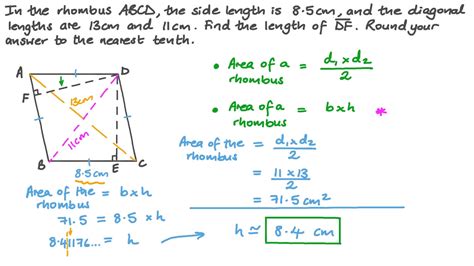 In the rhombus ABCD, the side length is 8.5cm, and the diagonal
lengths are 13cm and 11cm. Find the length of DF. Round your
answer to the nearest tenth.
A
D
F
13cm
11cm
B
E
C
8.5cm
• Area of a rhombus = d₁ x d₂ / 2
• Area of a rhombus = b x h *
Area of the rhombus = d₁ x d₂ / 2
= 11 x 13 / 2
= 71.5 cm²
Area of the rhombus = b x h
71.5 = 8.5 x h
8.41176... = h
h ≃ 8.4 cm